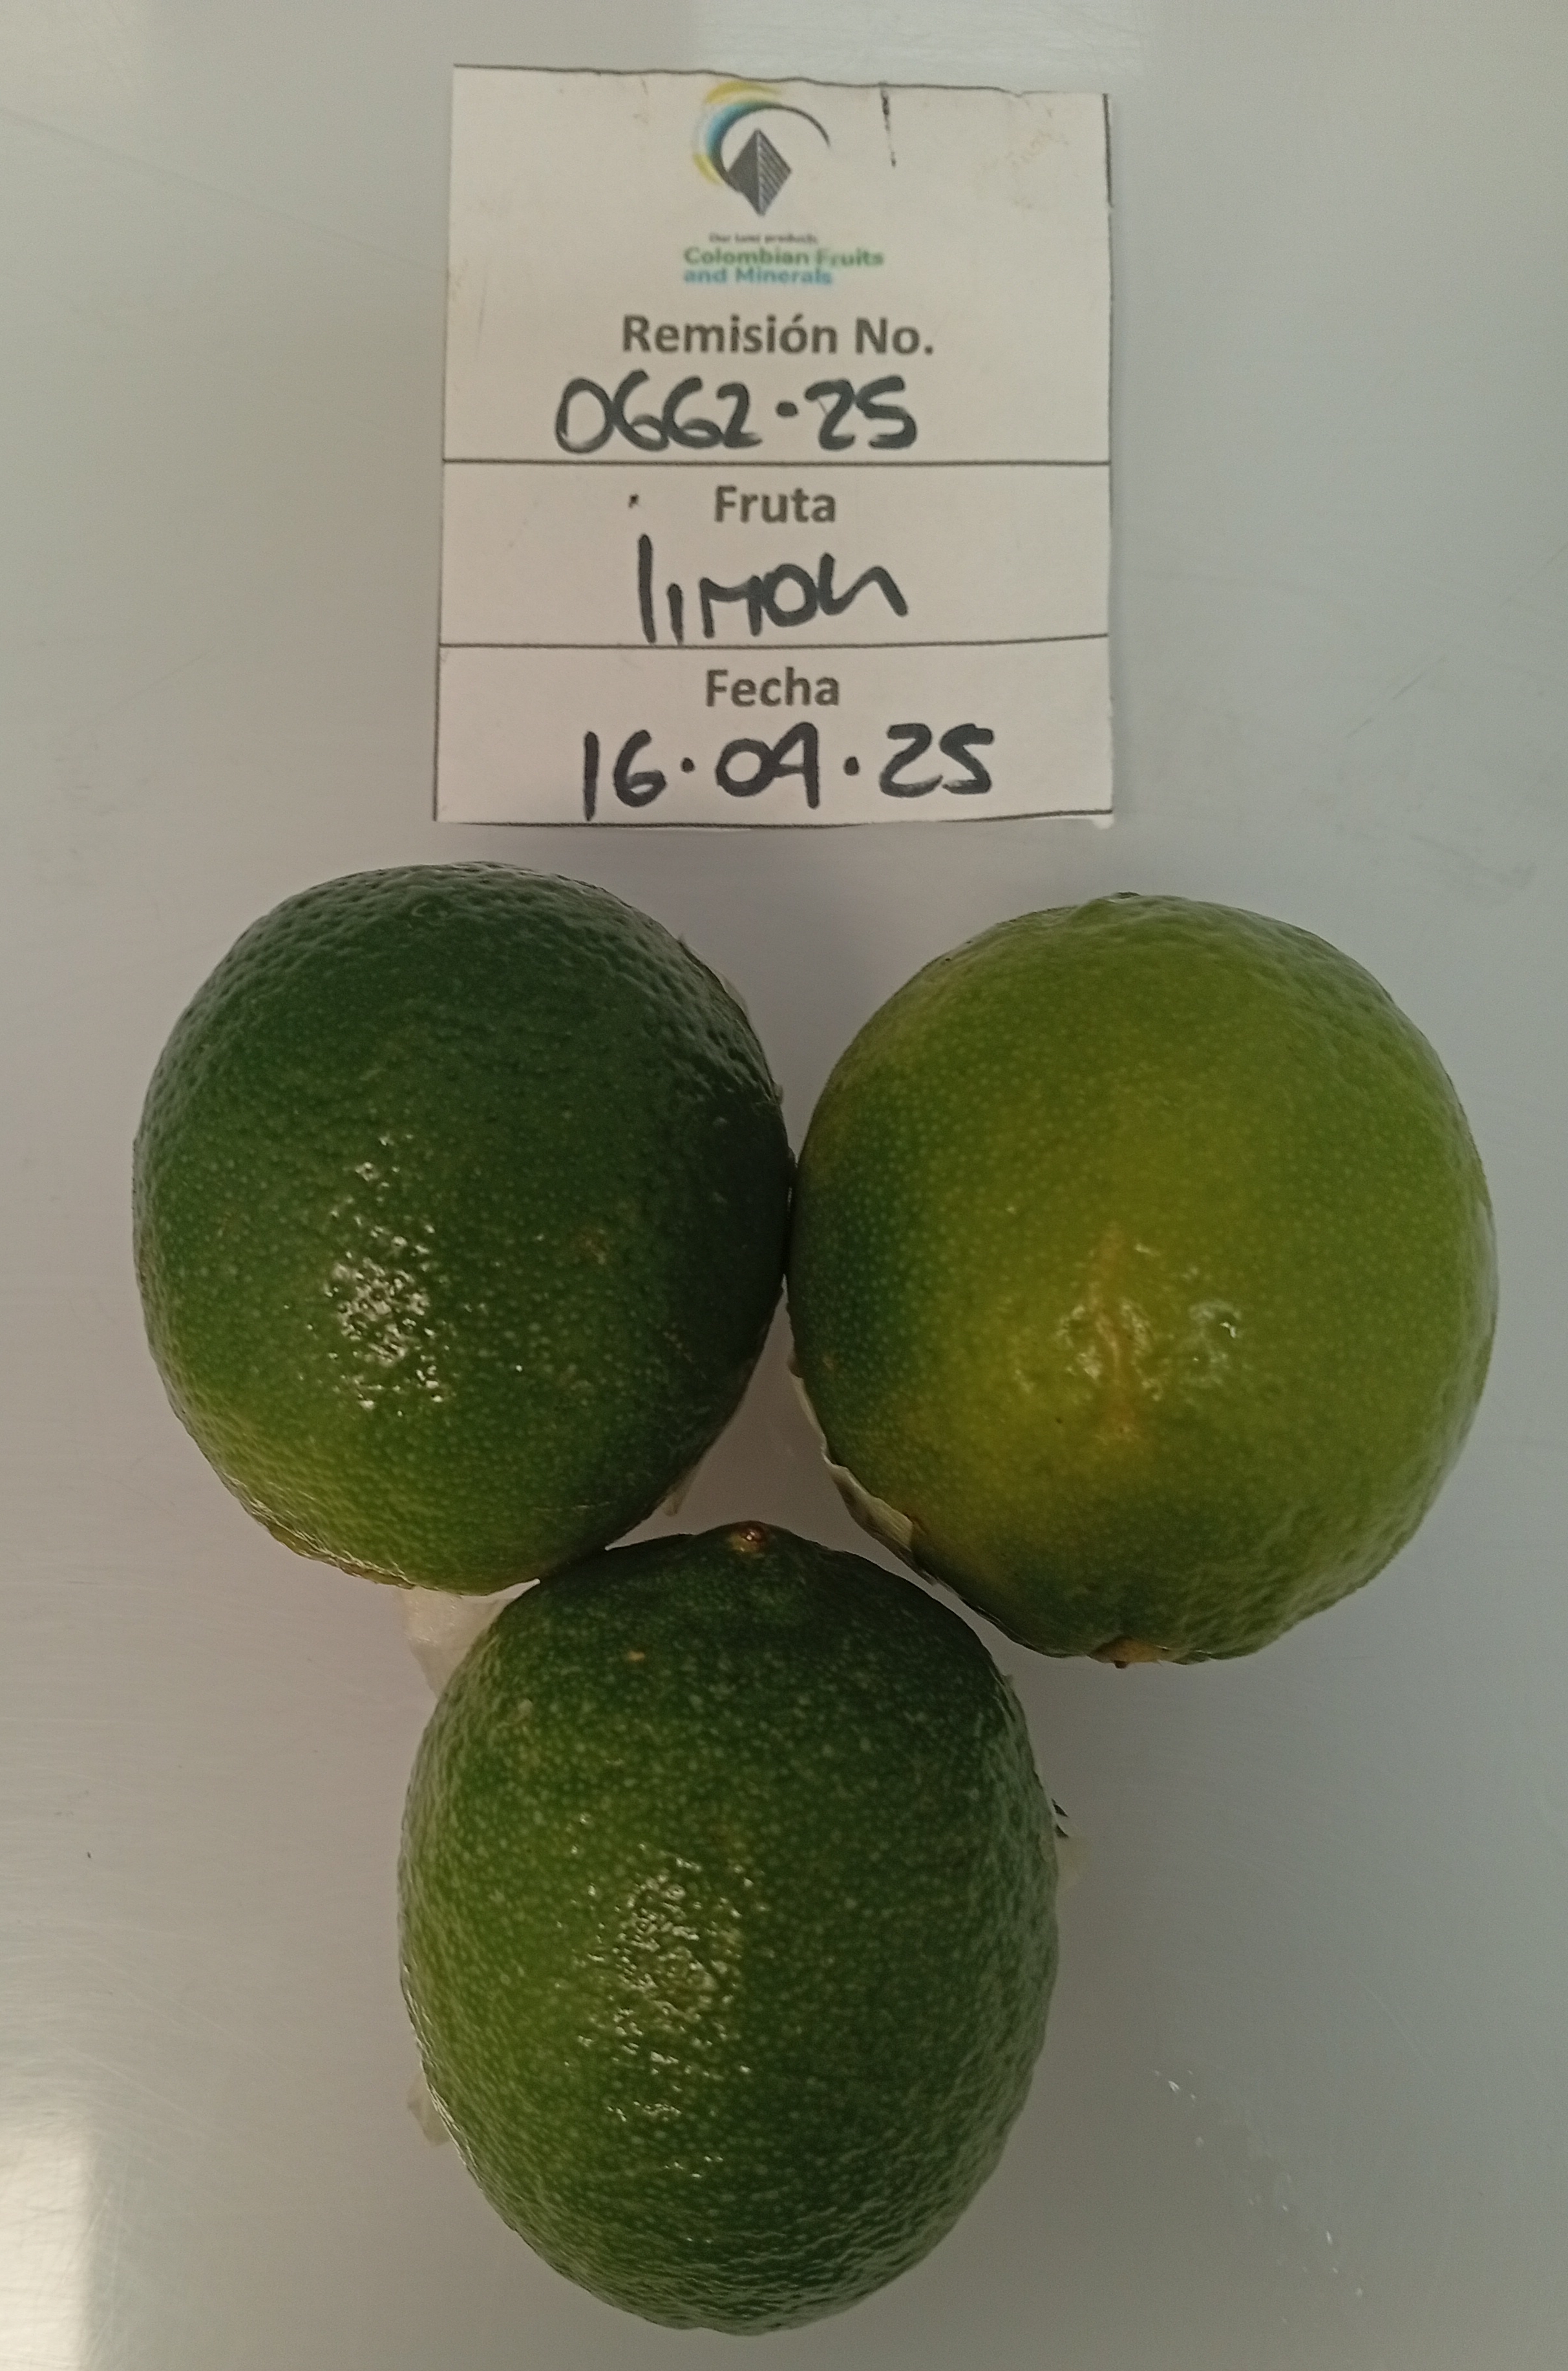 Our best products
Colombian Fruits
and Minerals
Remisión No.
0662-25
Fruta
limon
Fecha
16.09.25